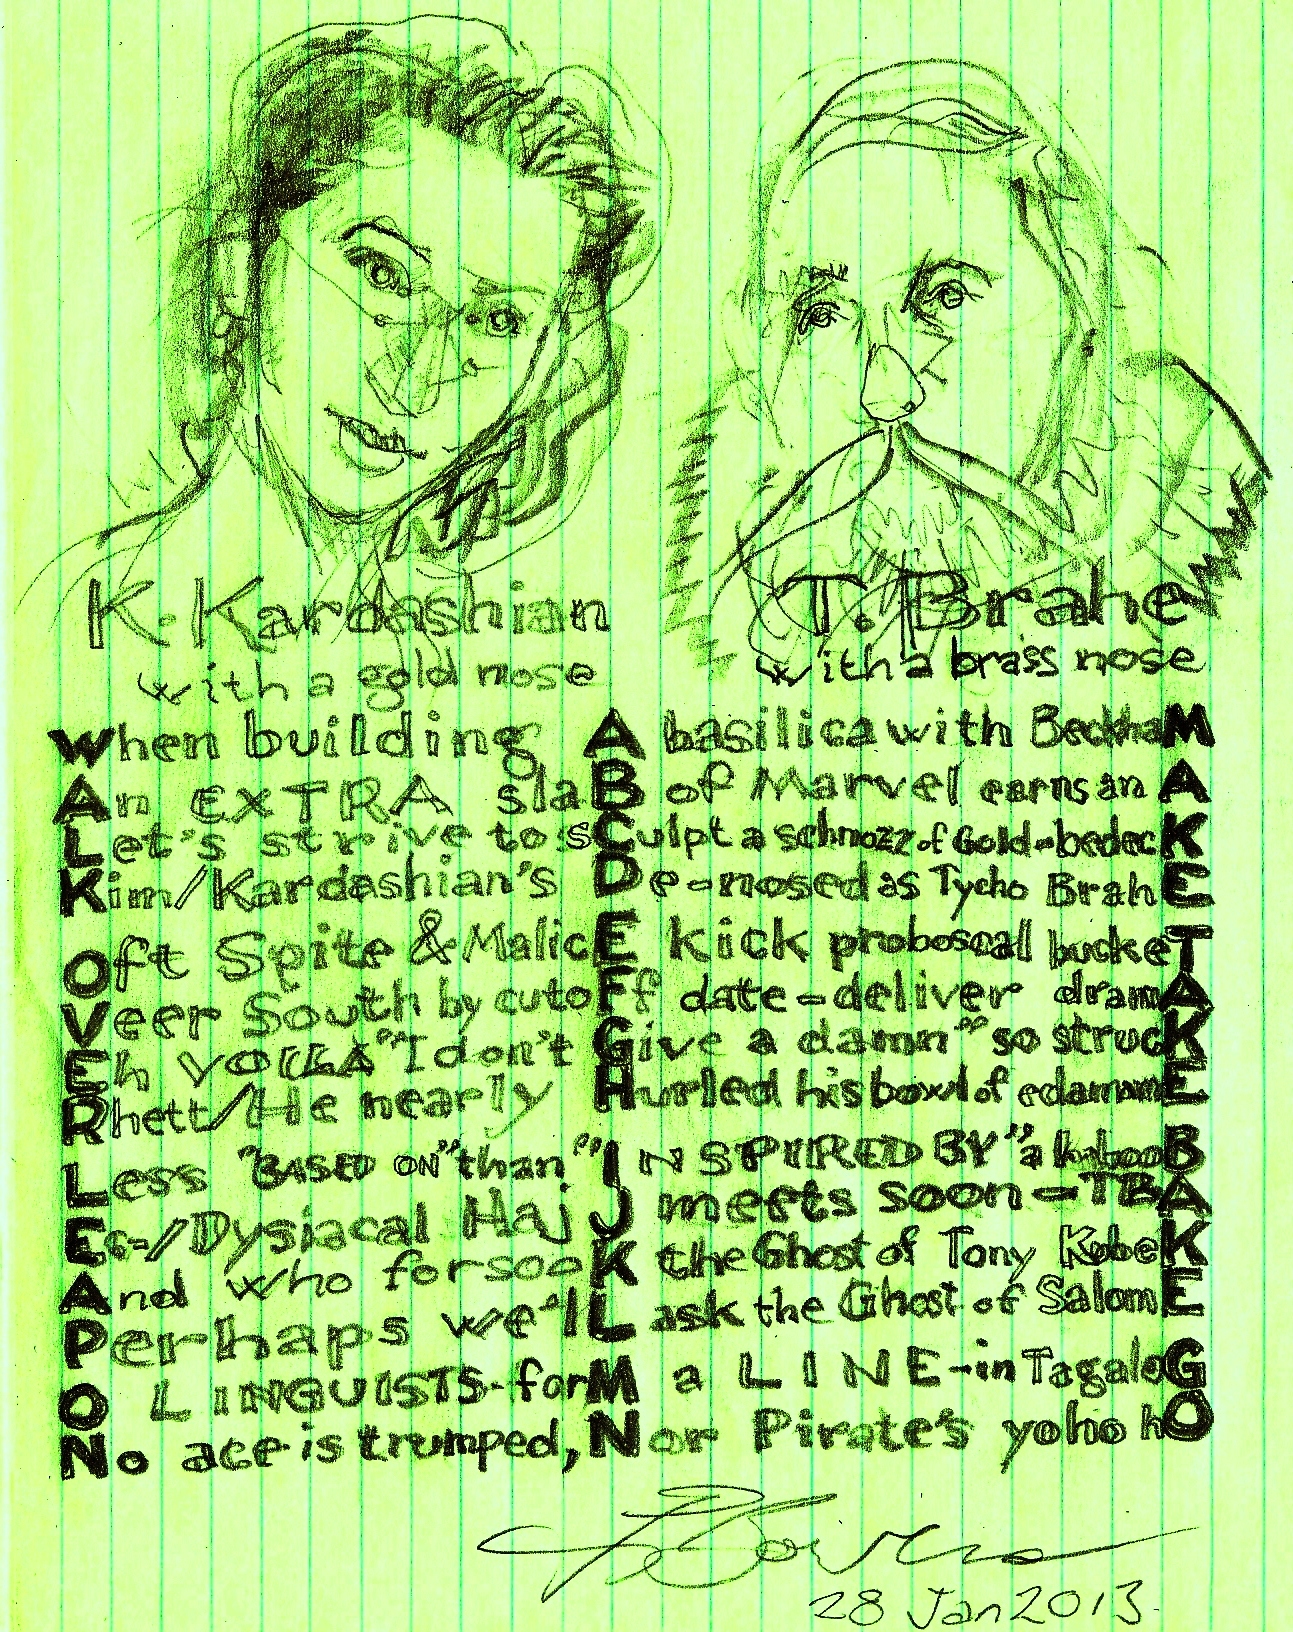 K. Kardashian
with a gold nose
T. Brahe
with a brass nose
When building A basilica with BeckhaM
An EXTRA slaB of Marvel earns an A
Let's strive to sCulpt a schnozz of Gold-bedecK
Kim/Kardashian's De-nosed as Tycho BrahE
Oft Spite & MalicE kick proboscal buckeT
Veer South by cutoFf date-deliver dramA
Eh VOILA "I don't Give a damn" so strucK
Rhett/He nearly Hurled his bowl of edamamE
Less "BASED ON" than "INSPIRED BY" a kabooB
Es-/Dysiacal Haj J meets soon-TBA
And who forsooK the Ghost of Tony KubeK
Perhaps we'll L ask the Ghost of SalomE
O LINGUISTS-forM a LINE-in TagaloG
No ace is trumped, Nor Pirate's yoho hO
28 Jan 2013